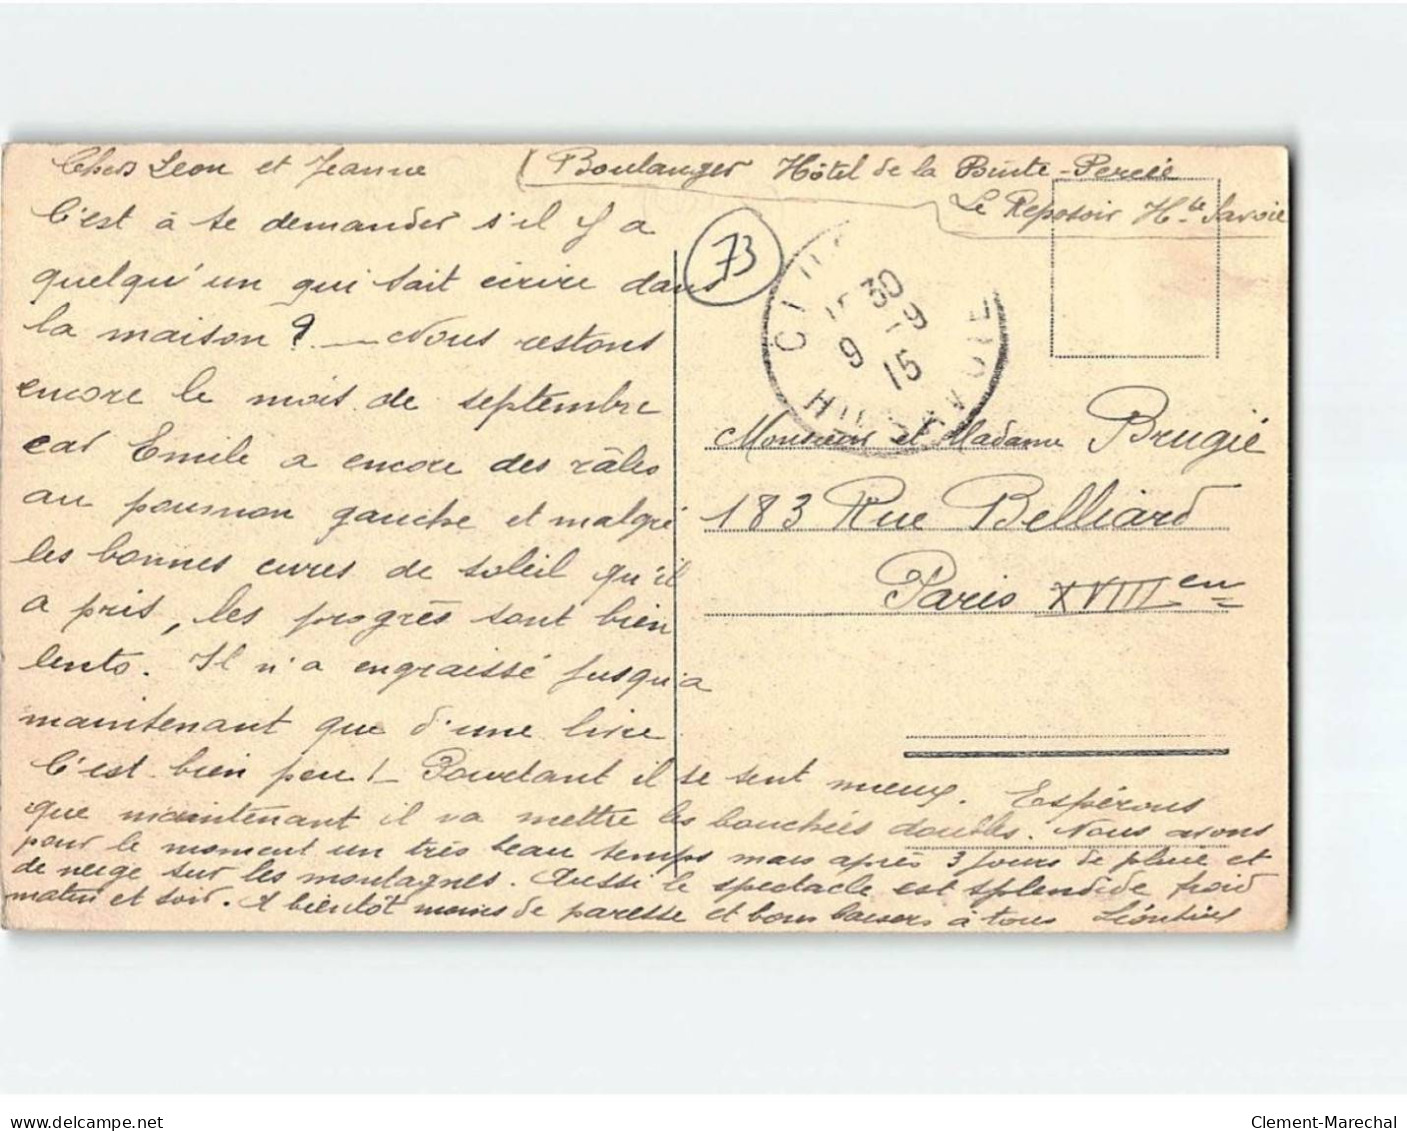 Chers Leon et Jeanne
(Boulanger Hôtel de la Pointe-Percée
Le Reposoir Hte Savoie
C'est à se demander s'il y a
quelqu'un qui sait écrire dans
la maison ? — Nous restons
encore le mois de septembre
car Emile a encore des râles
au poumon gauche et malgré
les bonnes cures de soleil qu'il
a pris, les progrès sont bien
lents. Il n'a engraissé jusqu'a
maintenant que d'une livre
C'est bien peu ! — Pourtant il se sent mieux. Espérons
que maintenant il va mettre les bouchées doubles. Nous avons
pour le moment un très beau temps mais après 3 jours de pluie et
de neige sur les montagnes. Aussi le spectacle est splendide froid
matin et soir. A bientôt moins de paresse et bons baisers à tous Léontine
73
30
9 - 9
15
Hte SAVOIE
Monsieur et Madame Brugié
183 Rue Belliard
Paris XVIIIen
www.delcampe.net
Clement-Marechal